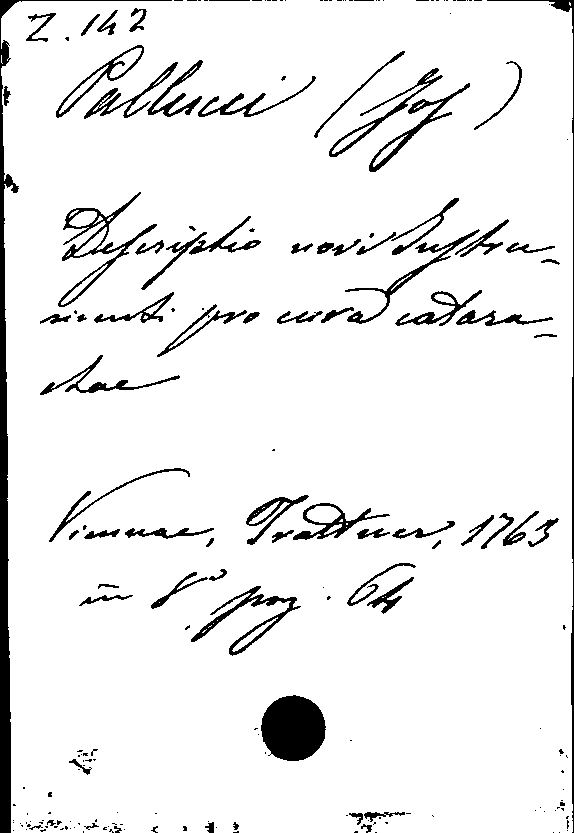 Z. 142
Pallucci (Jos)
Descriptio novi Instru-
menti pro cura catara-
ctae
Viennae, Trattner, 1763
in 8° pag. 64